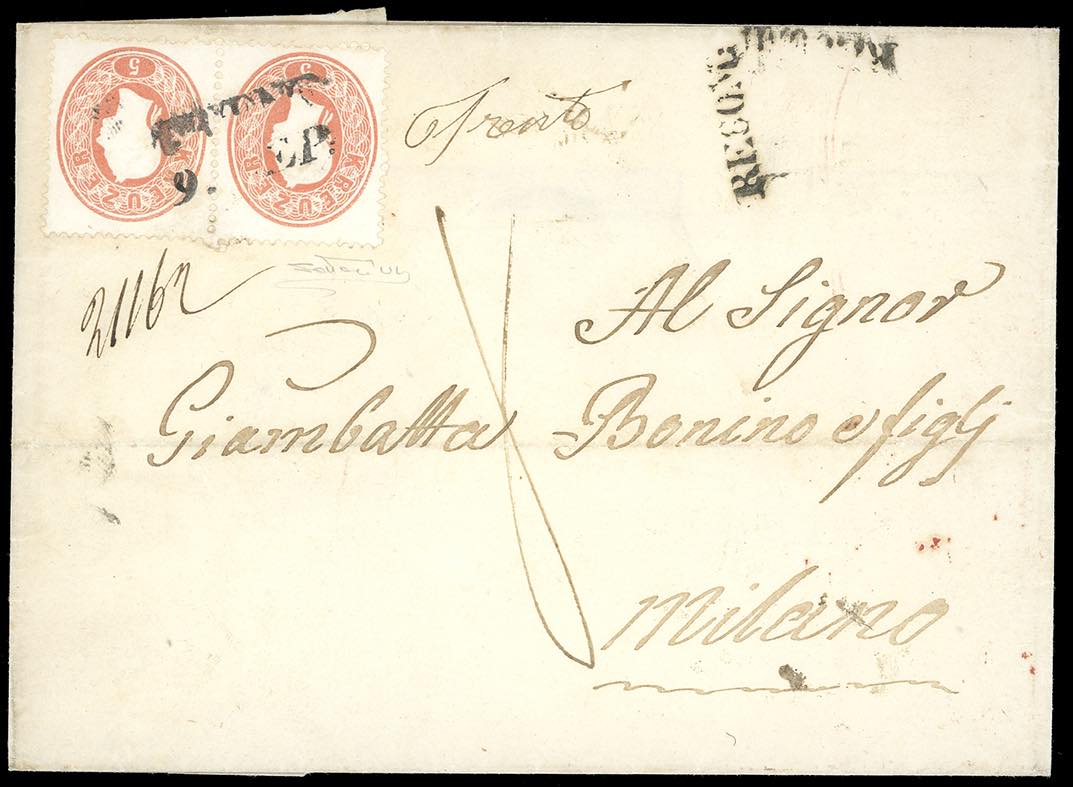 5 KREUZER
5 KREUZER
9. EP.
RECOM
21162
Al Signor
Giambatta Bonino e figlj
Milano